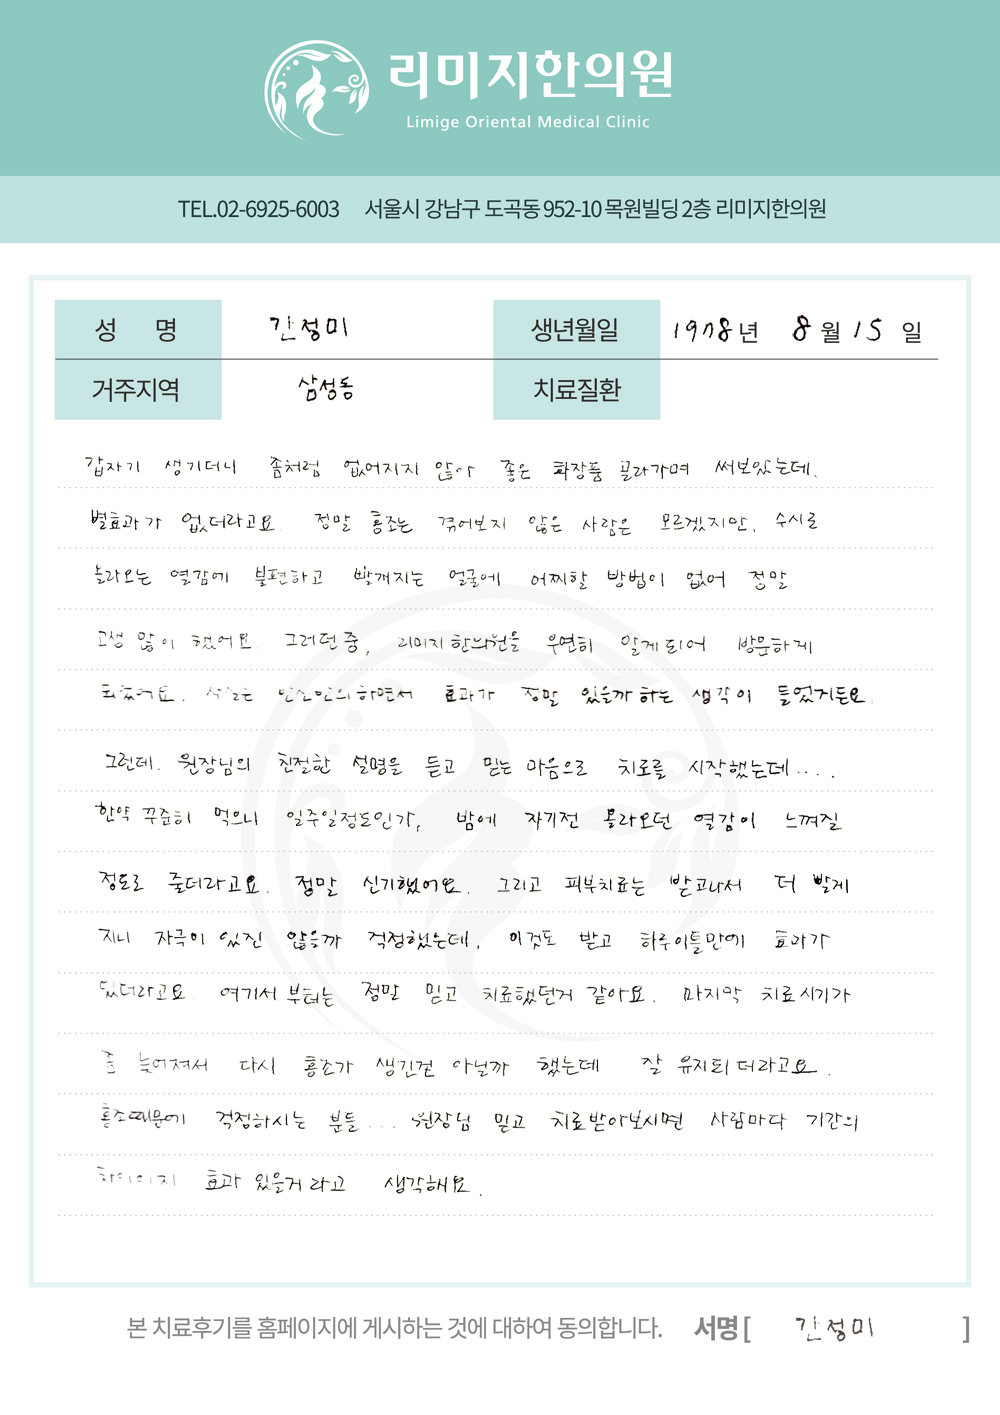 리미지한의원
Limige Oriental Medical Clinic
TEL.02-6925-6003 서울시 강남구 도곡동 952-10 목원빌딩 2층 리미지한의원
성 명 간정미 생년월일 1978년 8월 15일
거주지역 삼성동 치료질환
갑자기 생기더니 좀처럼 없어지지 않아 좋은 화장품 골라가며 써보았는데,
별효과가 없더라고요. 정말 홍조는 겪어보지 않은 사람은 모르겠지만, 수시로
올라오는 열감에 불편하고 빨개지는 얼굴에 어찌할 방법이 없어 정말
고생 많이 했어요. 그러던 중, 리미지한의원을 우연히 알게되어 방문하게
되었어요. 사실은 반신반의하면서 효과가 정말 있을까 하는 생각이 들었거든요.
그런데, 원장님의 친절한 설명을 듣고 믿는 마음으로 치료를 시작했는데....
한약 꾸준히 먹으니 일주일정도인가, 밤에 자기전 올라오던 열감이 느껴질
정도로 줄더라고요. 정말 신기했어요. 그리고 피부치료는 받고나서 더 빨게
지니 자극이 있진 않을까 걱정했는데, 이것도 받고 하루이틀만에 효과가
있더라고요. 여기서 부터는 정말 믿고 치료했던거 같아요. 마지막 치료시기가
좀 늦어져서 다시 홍조가 생긴건 아닐까 했는데 잘 유지되더라고요.
홍조때문에 걱정하시는 분들... 원장님 믿고 치료받아보시면 사람마다 기간의
차이이지 효과 있을거라고 생각해요.
본 치료후기를 홈페이지에 게시하는 것에 대하여 동의합니다. 서명 [ 간정미 ]